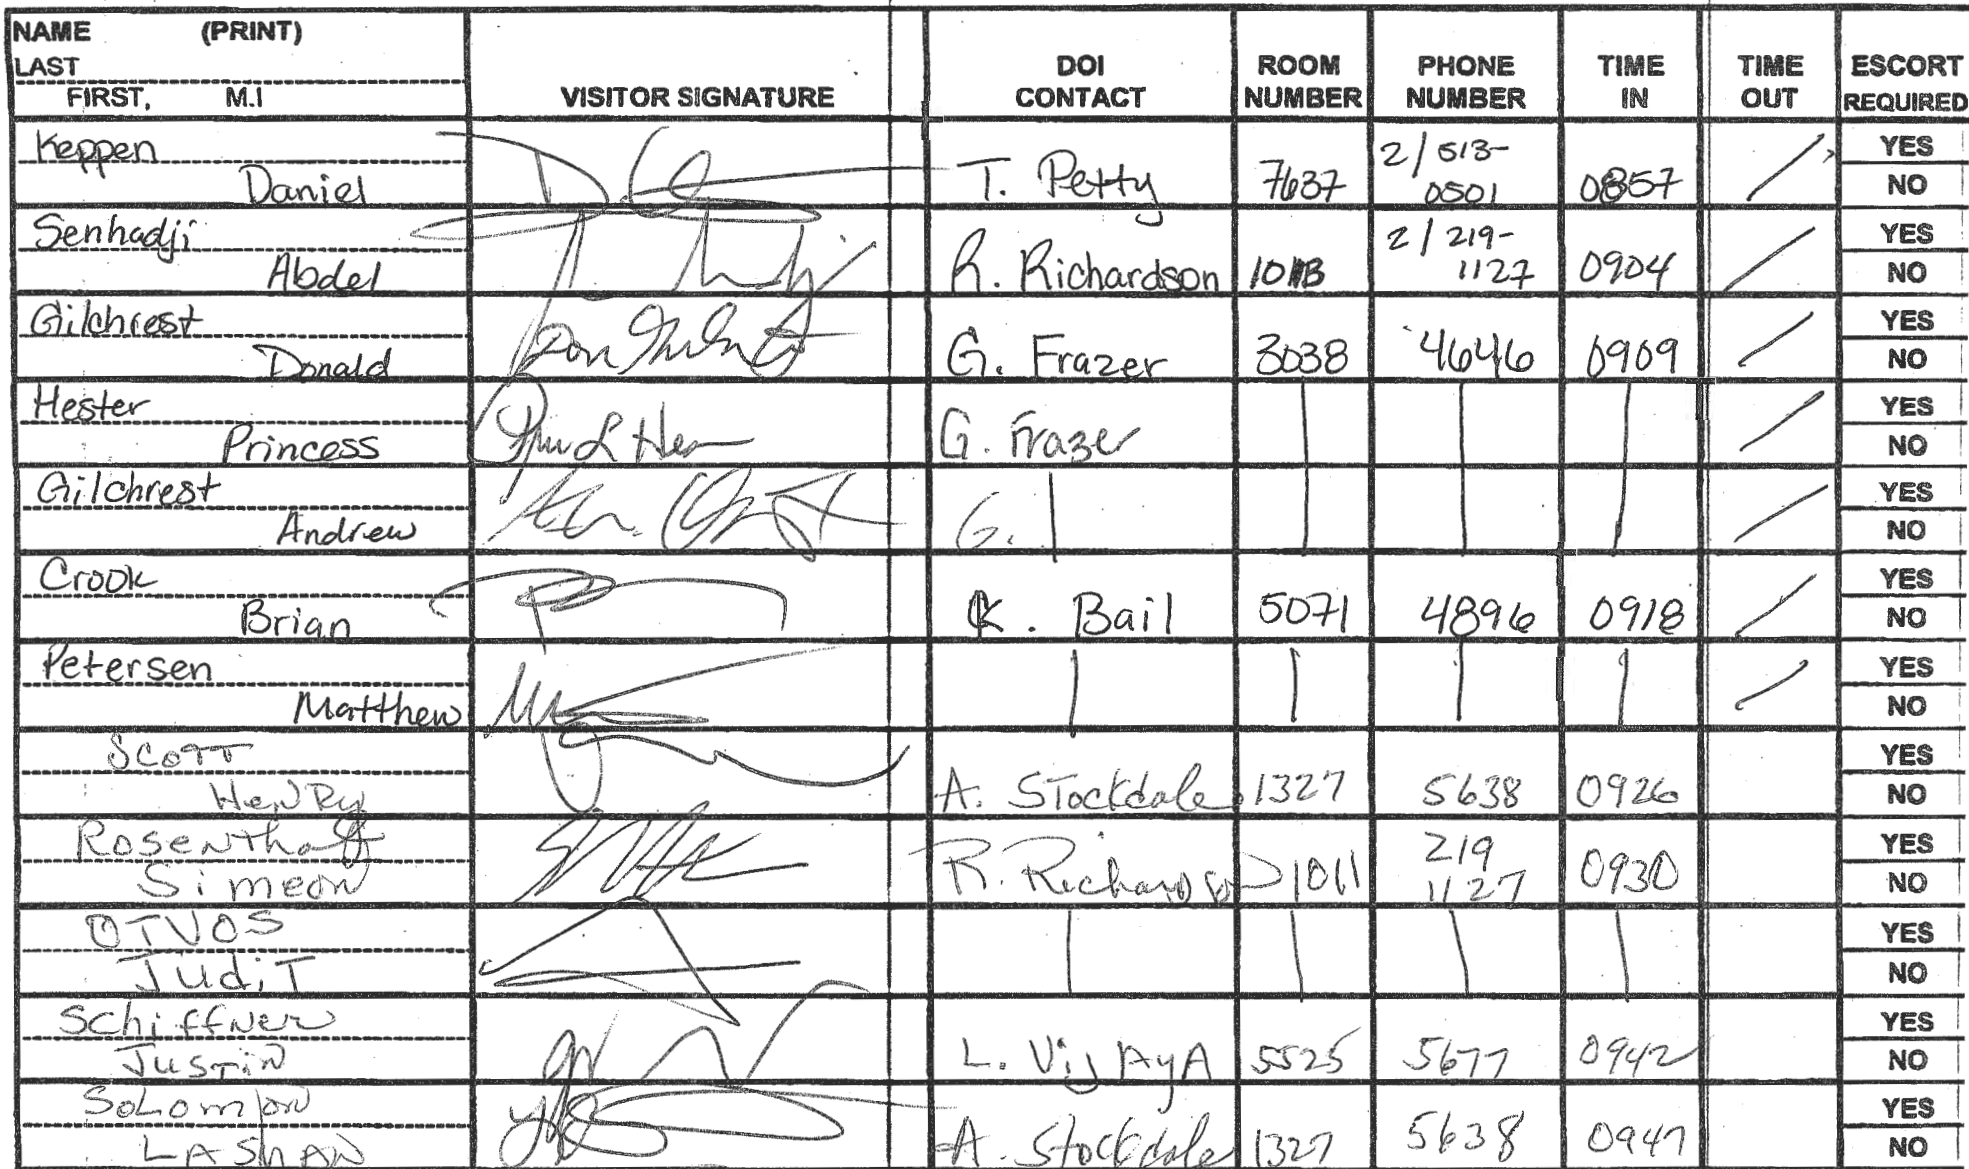 NAME (PRINT)
LAST
FIRST, M.I
VISITOR SIGNATURE
DOI CONTACT
ROOM NUMBER
PHONE NUMBER
TIME IN
TIME OUT
ESCORT REQUIRED
Keppen
Daniel
T. Petty 7637 2/513-0501 0857
YES
NO
Senhadji
Abdel
R. Richardson 2/219-1127 0904
YES
NO
Gilchrest
Donald
G. Frazer 3038 4646 0909
YES
NO
Hester
Princess
G. Frazer
YES
NO
Gilchrest
Andrew
G.
YES
NO
Crook
Brian
K. Bail 5071 4896 0918
YES
NO
Petersen
Matthew
YES
NO
Scott
Henry
A. Stockdale 1327 5638 0926
YES
NO
Simeon
R. Richardson 1011 219 1127 0930
YES
NO
OTVOS
JudiT
YES
NO
Schiffner
Justin
L. VijAyA 5525 5677 0942
YES
NO
Solomon
LASHAN
A. Stockdale 1327 5638 0947
YES
NO